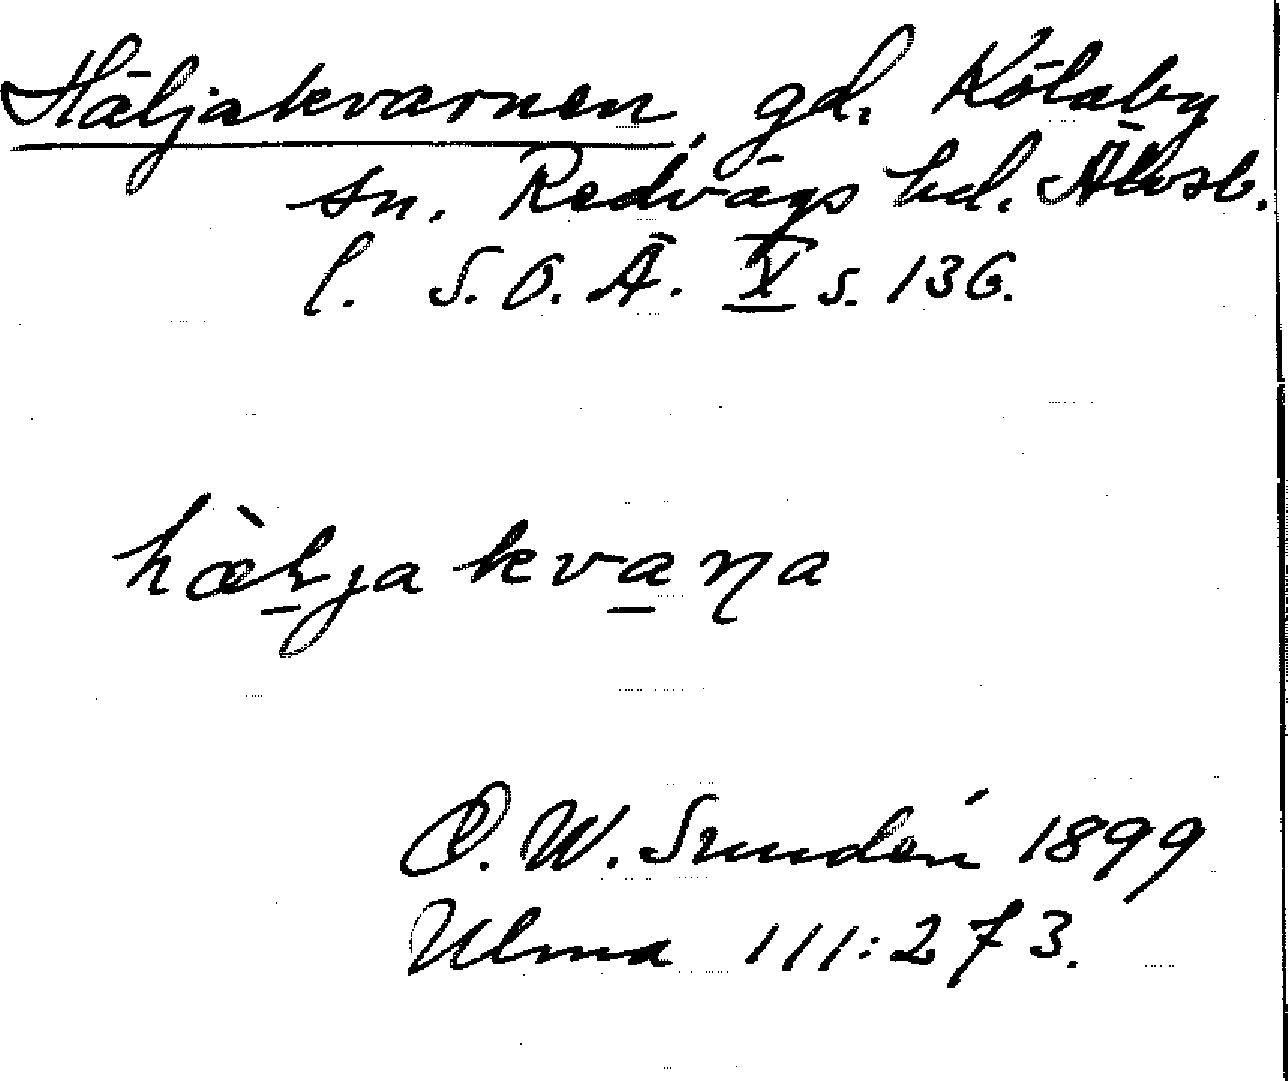 Häljakvarnen, gd. Kölaby
sn. Redvägs hd. Älvsb.
l. S.O.Ä. X s. 136.
hæ̀ḻja kva̱ŋa
D. W. Sundén 1899
Ulma 111:273.